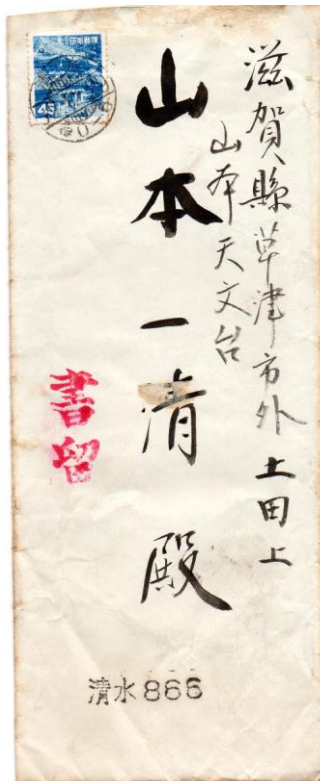 滋賀縣草津市外 土田上
山本天文台
山本一清 殿
書留
清水866
45